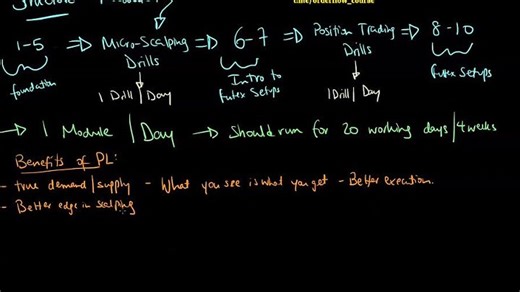 t.me/ordernow_course
Structure
1-5 => Micro-Scalping Drills => 6-7 => Position Trading Drills => 8-10
foundation
1 Drill | Day
Intro to Futex Setups
1 Drill | Day
Futex Setups
→ 1 Module | Day → Should run for 20 working days | 4 weeks
Benefits of PL:
- true demand | supply - What you see is what you get - Better execution.
- Better edge in scalping